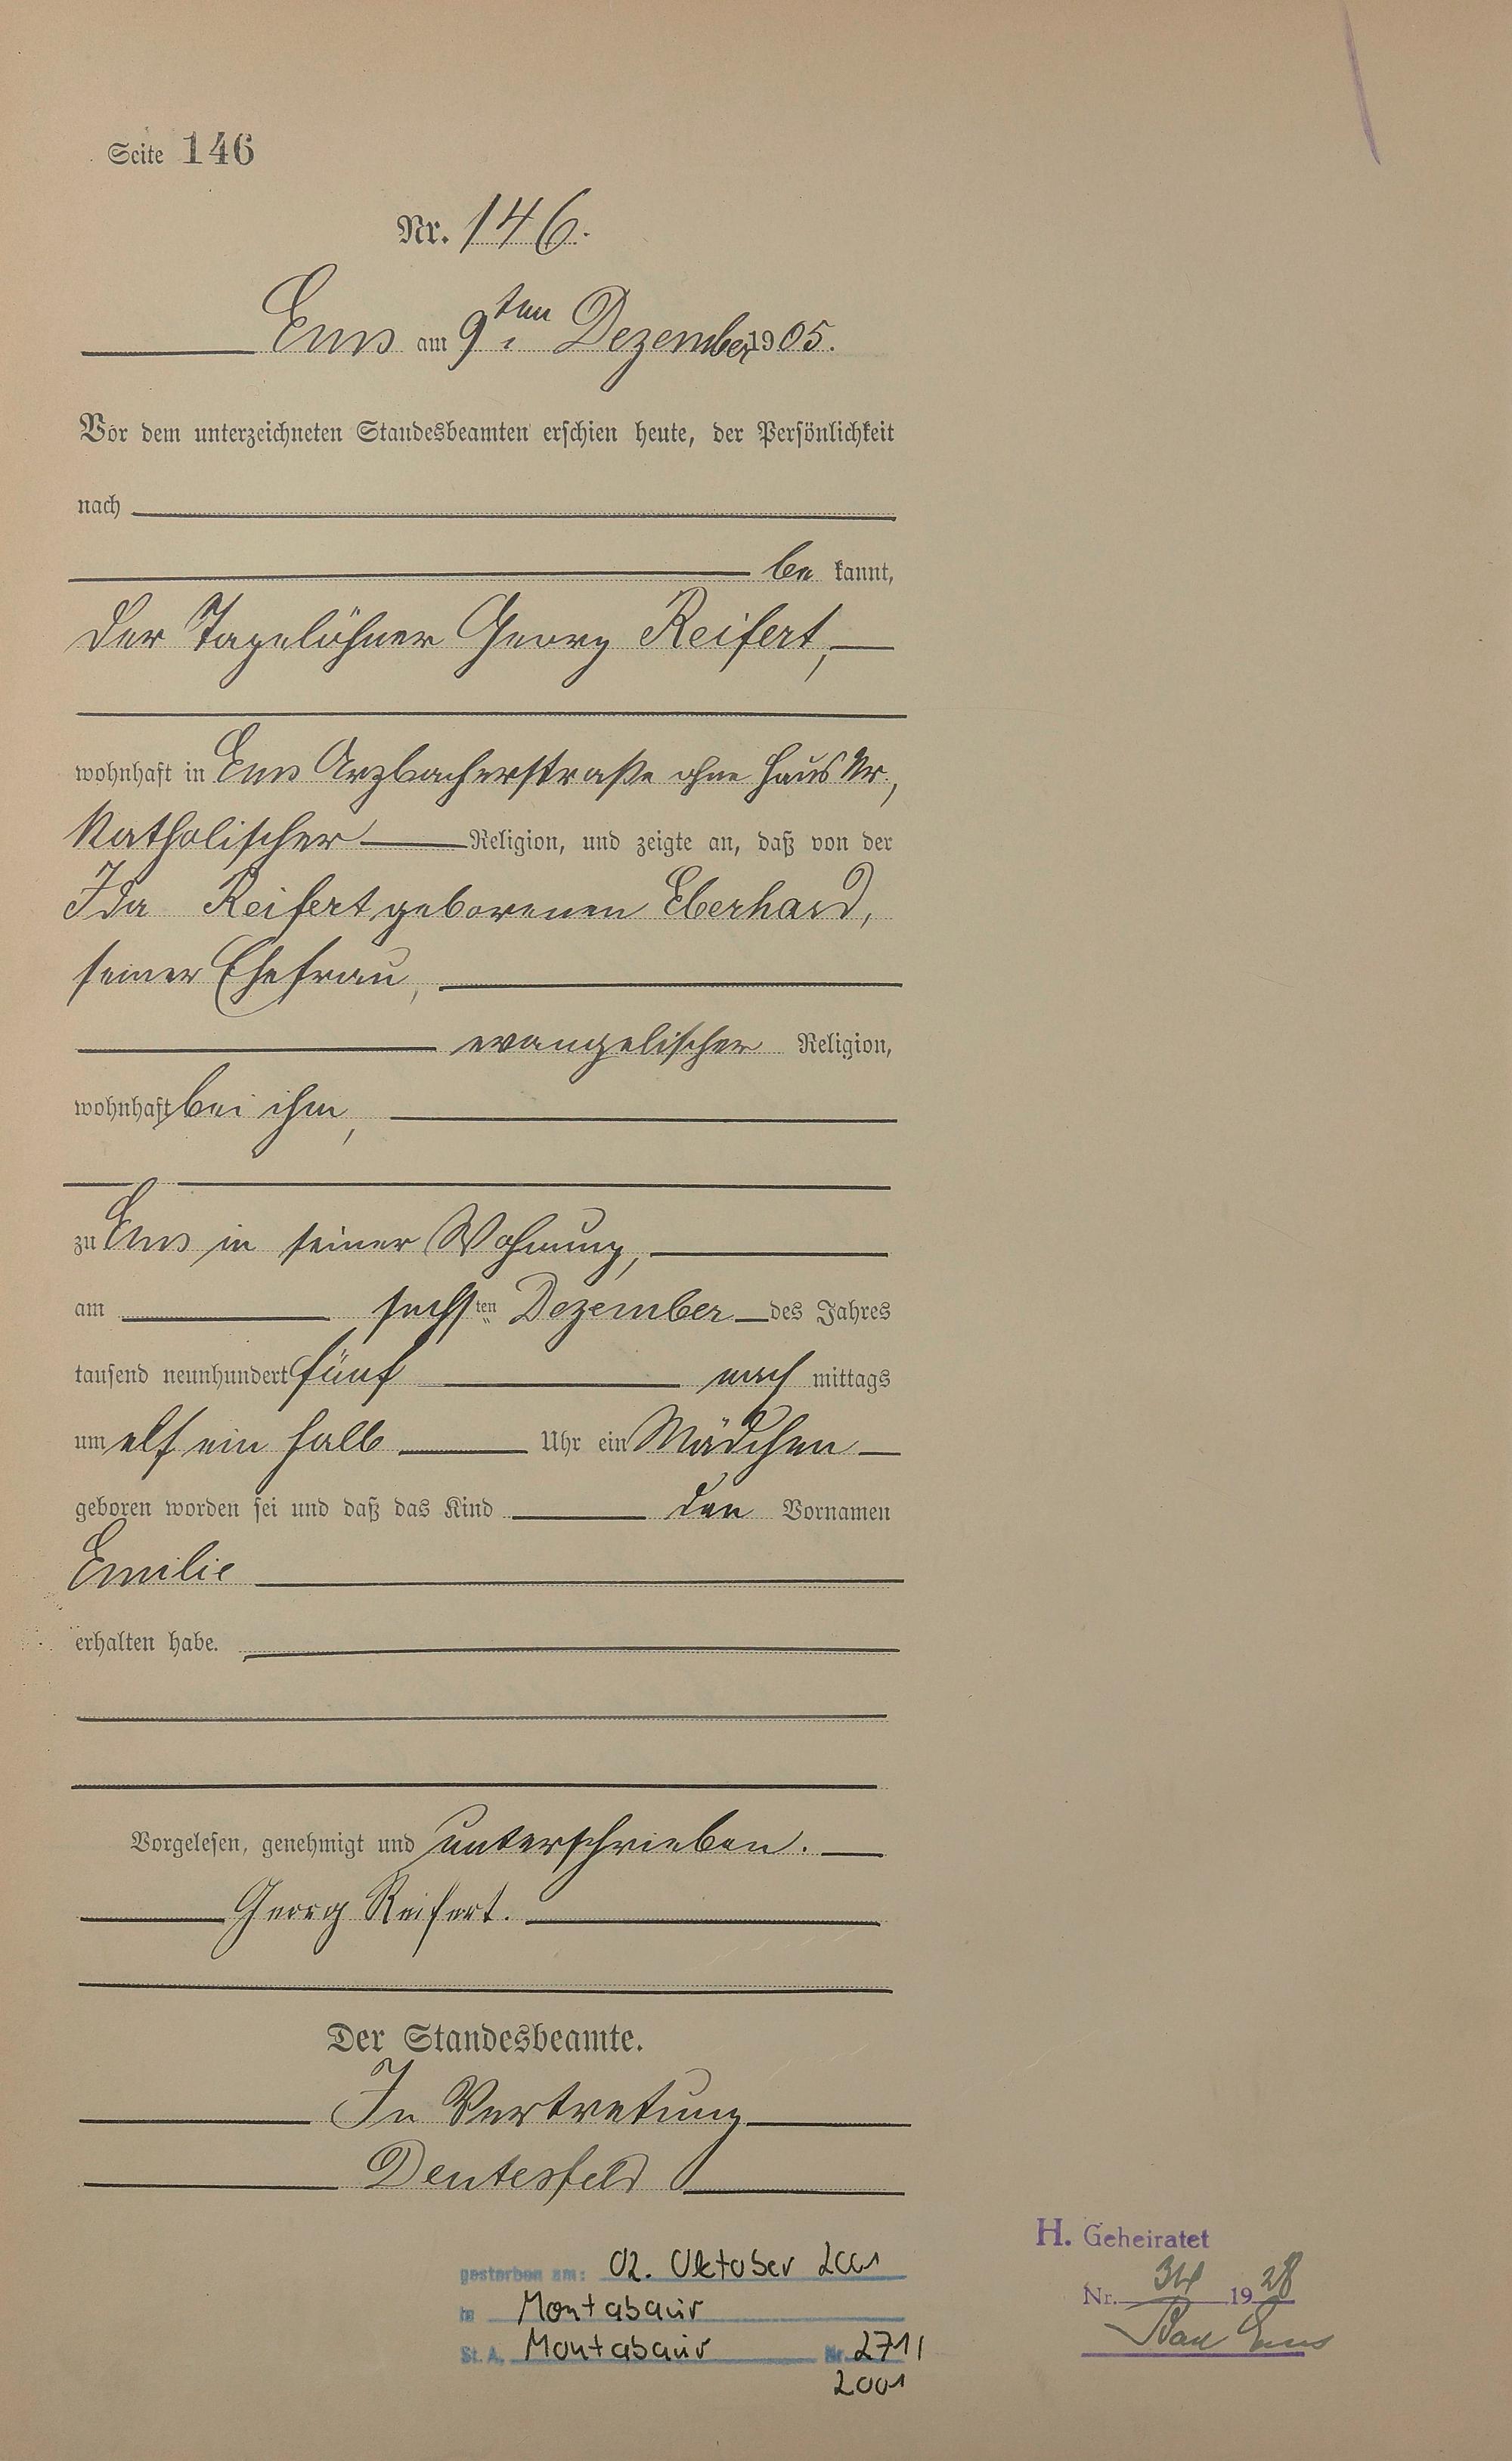 Seite 146
Nr. 146.
Ems am 9ten Dezember 1905.
Vor dem unterzeichneten Standesbeamten erschien heute, der Persönlichkeit
nach
be kannt,
der Tagelöhner Georg Reifert,
wohnhaft in Ems Arzbacherstraße ohne Haus Nr.,
katholischer Religion, und zeigte an, daß von der
Ida Reifert geborenen Eberhard,
seiner Ehefrau,
evangelischer Religion,
wohnhaft bei ihm,
zu Ems in seiner Wohnung,
am sechsten Dezember des Jahres
tausend neunhundert fünf nach mittags
um elf ein halb Uhr ein Mädchen
geboren worden sei und daß das Kind den Vornamen
Emilie
erhalten habe.
Vorgelesen, genehmigt und unterschrieben.
Georg Reifert.
Der Standesbeamte.
In Vertretung
Deutesfeld
gestorben am: 02. Oktober 2001
in Montabaur
St. A. Montabaur Nr. 271/
2001
H. Geheiratet
Nr. 34 1928
Bad Ems